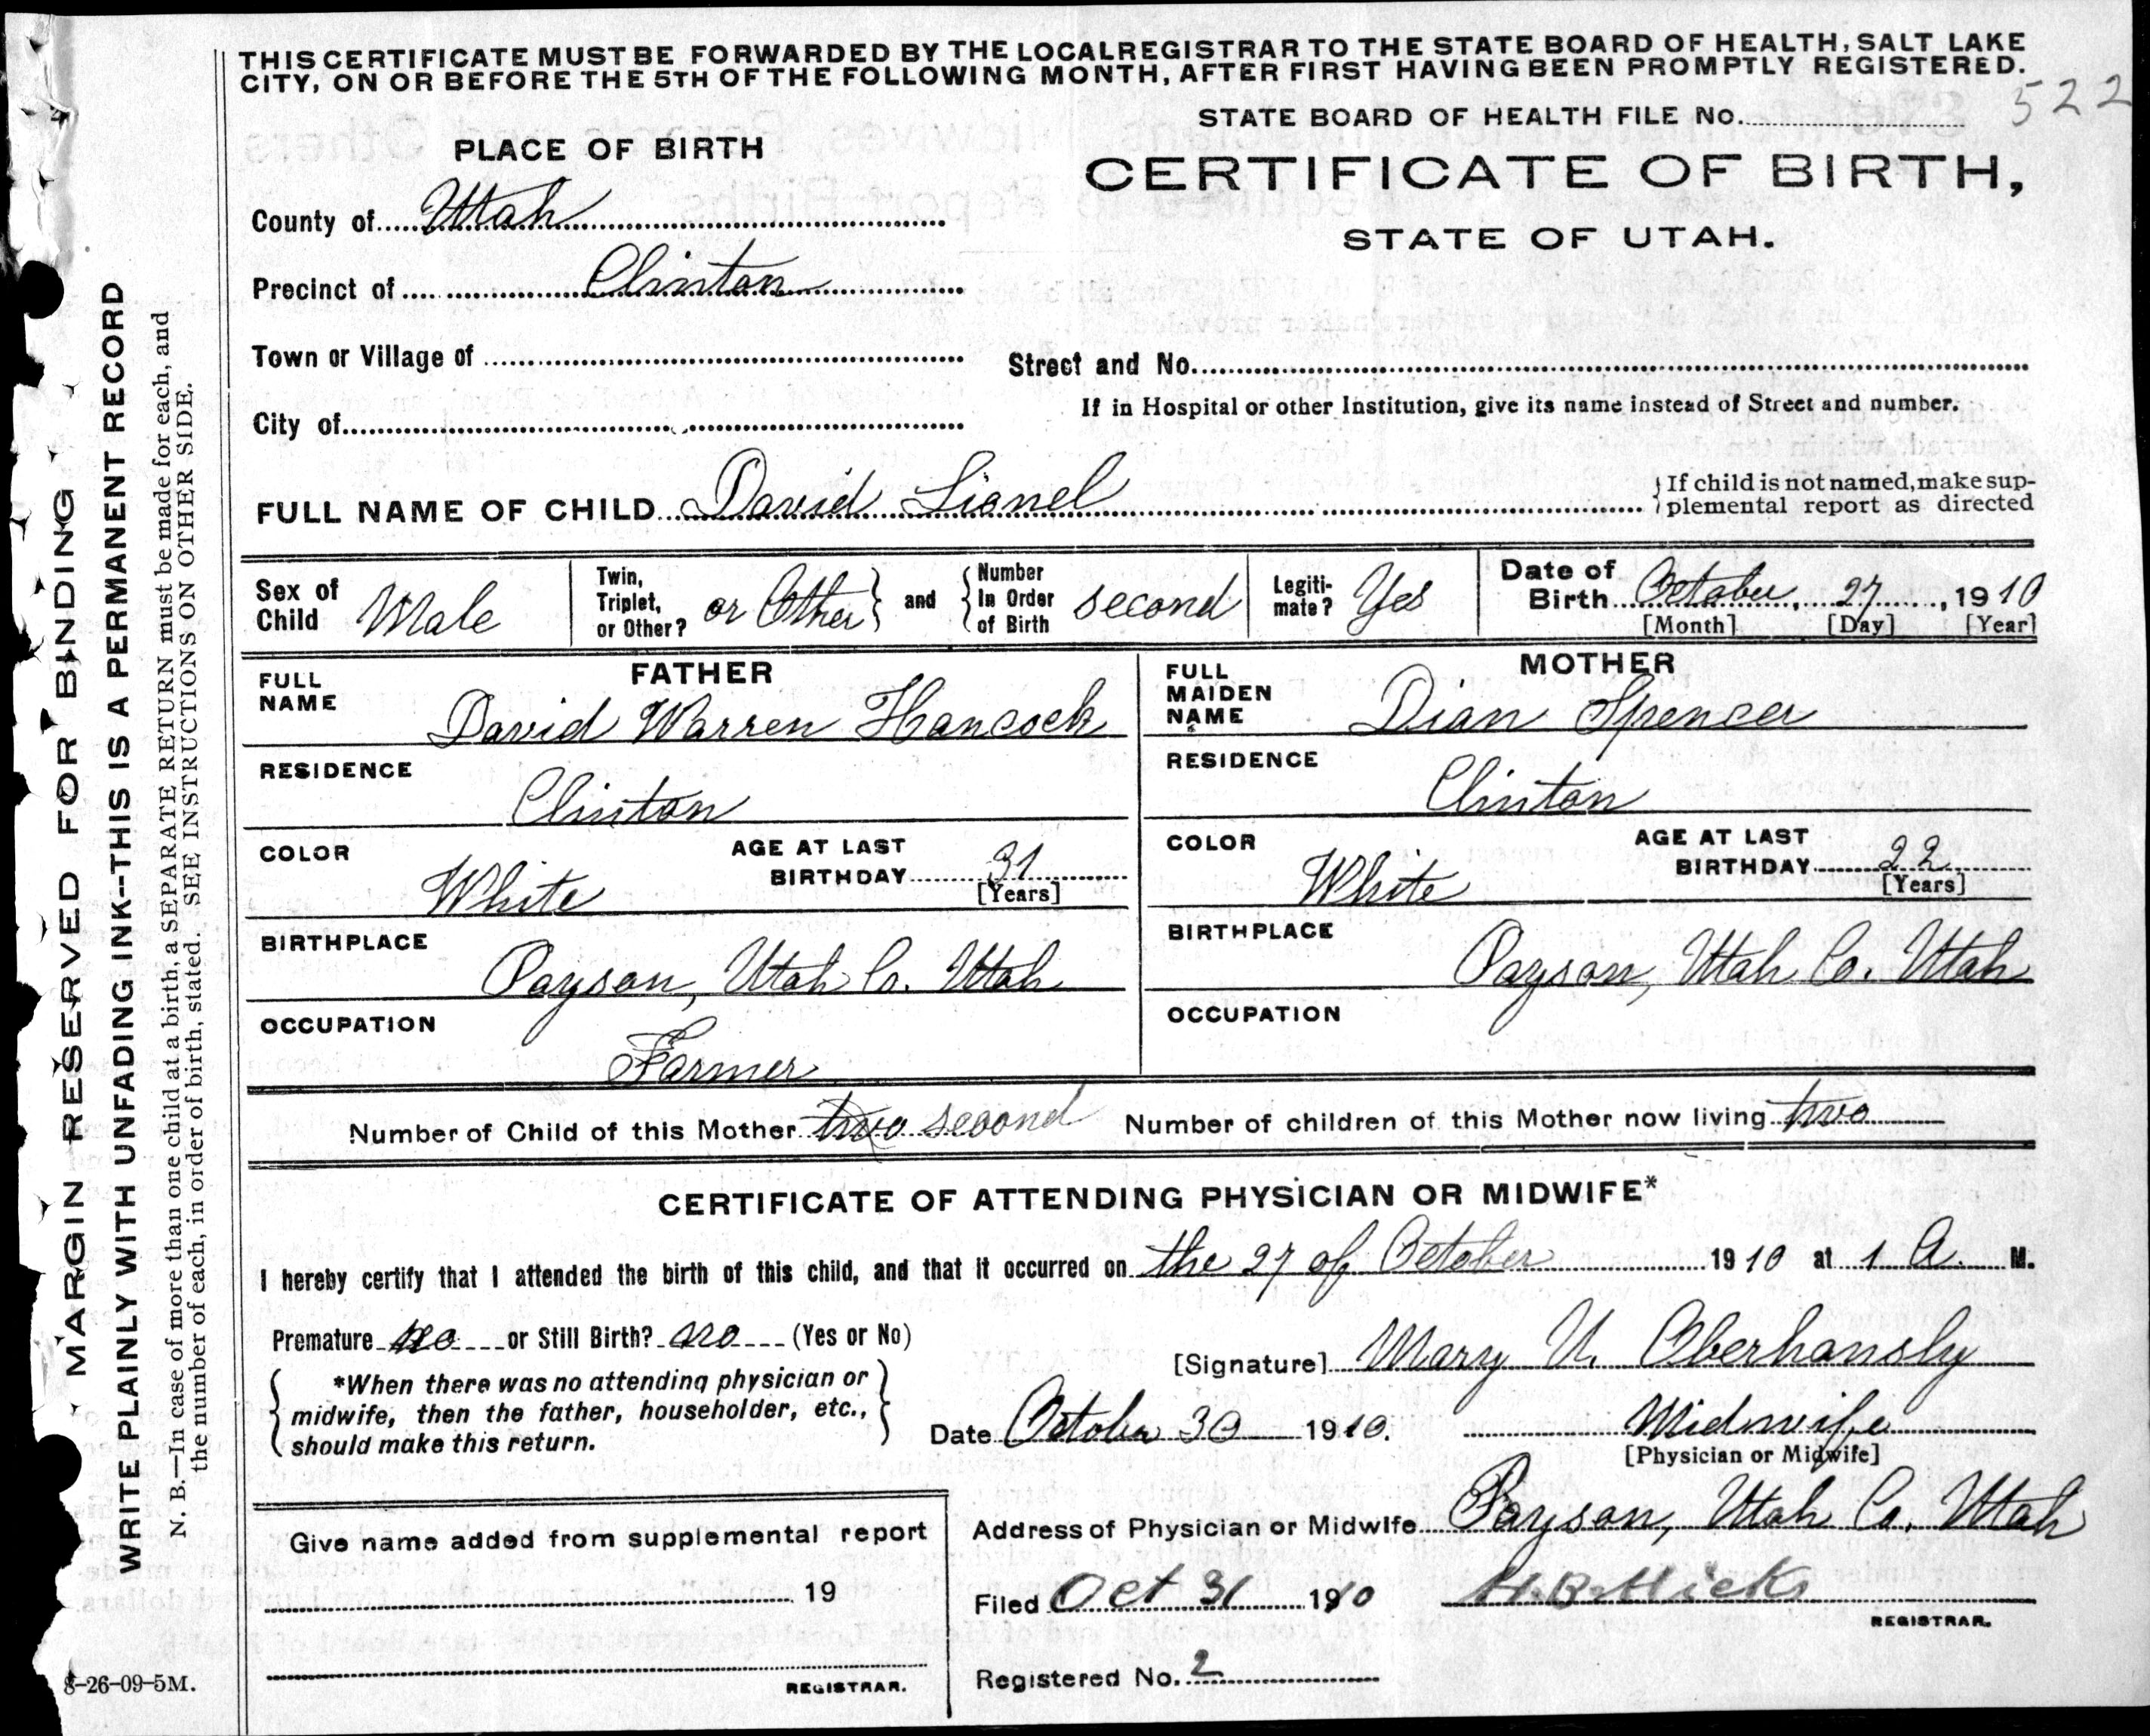 THIS CERTIFICATE MUST BE FORWARDED BY THE LOCAL REGISTRAR TO THE STATE BOARD OF HEALTH, SALT LAKE
CITY, ON OR BEFORE THE 5TH OF THE FOLLOWING MONTH, AFTER FIRST HAVING BEEN PROMPTLY REGISTERED.
522
STATE BOARD OF HEALTH FILE No.
PLACE OF BIRTH
CERTIFICATE OF BIRTH,
STATE OF UTAH.
County of Utah
Precinct of Clinton
Town or Village of
Street and No.
If in Hospital or other Institution, give its name instead of Street and number.
City of
FULL NAME OF CHILD David Lionel
If child is not named, make sup-
plemental report as directed
Sex of
Child Male
Twin,
Triplet,
or Other? or Other
and
Number
In Order
of Birth second
Legiti-
mate? Yes
Date of
Birth October, 27, 1910
[Month] [Day] [Year]
FATHER
FULL
NAME
David Warren Hancock
RESIDENCE
Clinton
COLOR
White
AGE AT LAST
BIRTHDAY 31
[Years]
BIRTHPLACE
Payson, Utah Co. Utah
OCCUPATION
Farmer
MOTHER
FULL
MAIDEN
NAME
Dian Spencer
RESIDENCE
Clinton
COLOR
White
AGE AT LAST
BIRTHDAY 22
[Years]
BIRTHPLACE
Payson, Utah Co. Utah
OCCUPATION
Number of Child of this Mother two second Number of children of this Mother now living two
CERTIFICATE OF ATTENDING PHYSICIAN OR MIDWIFE*
I hereby certify that I attended the birth of this child, and that it occurred on the 27 of October 1910 at 1 A. M.
Premature no or Still Birth? no (Yes or No)
*When there was no attending physician or
midwife, then the father, householder, etc.,
should make this return.
[Signature] Mary U. Oberhansly
Date October 30 1910.
Midwife
[Physician or Midwife]
Give name added from supplemental report
19
REGISTRAR.
Address of Physician or Midwife Payson, Utah Co. Utah
Filed Oct 31 1910 H.B. Hicks
REGISTRAR.
Registered No. 2
8-26-09-5M.
MARGIN RESERVED FOR BINDING
WRITE PLAINLY WITH UNFADING INK--THIS IS A PERMANENT RECORD
N. B.—In case of more than one child at a birth, a SEPARATE RETURN must be made for each, and
the number of each, in order of birth, stated. SEE INSTRUCTIONS ON OTHER SIDE.